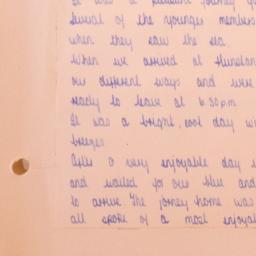 It was a pleasant journey
Several of the younger members
when they saw the sea.
When we arrived at Hunstan
our different ways and were
ready to leave at 6.30pm
It was a bright, cool day w
breeze.
After a very enjoyable day
and waited for our bus and
to arrive The jorney home was
all spoke of a most enjoyab